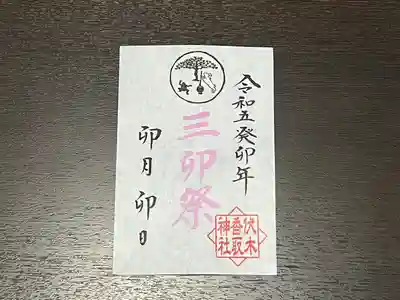 令和五癸卯年
三卯祭
卯月卯日
伏木
香取
神社